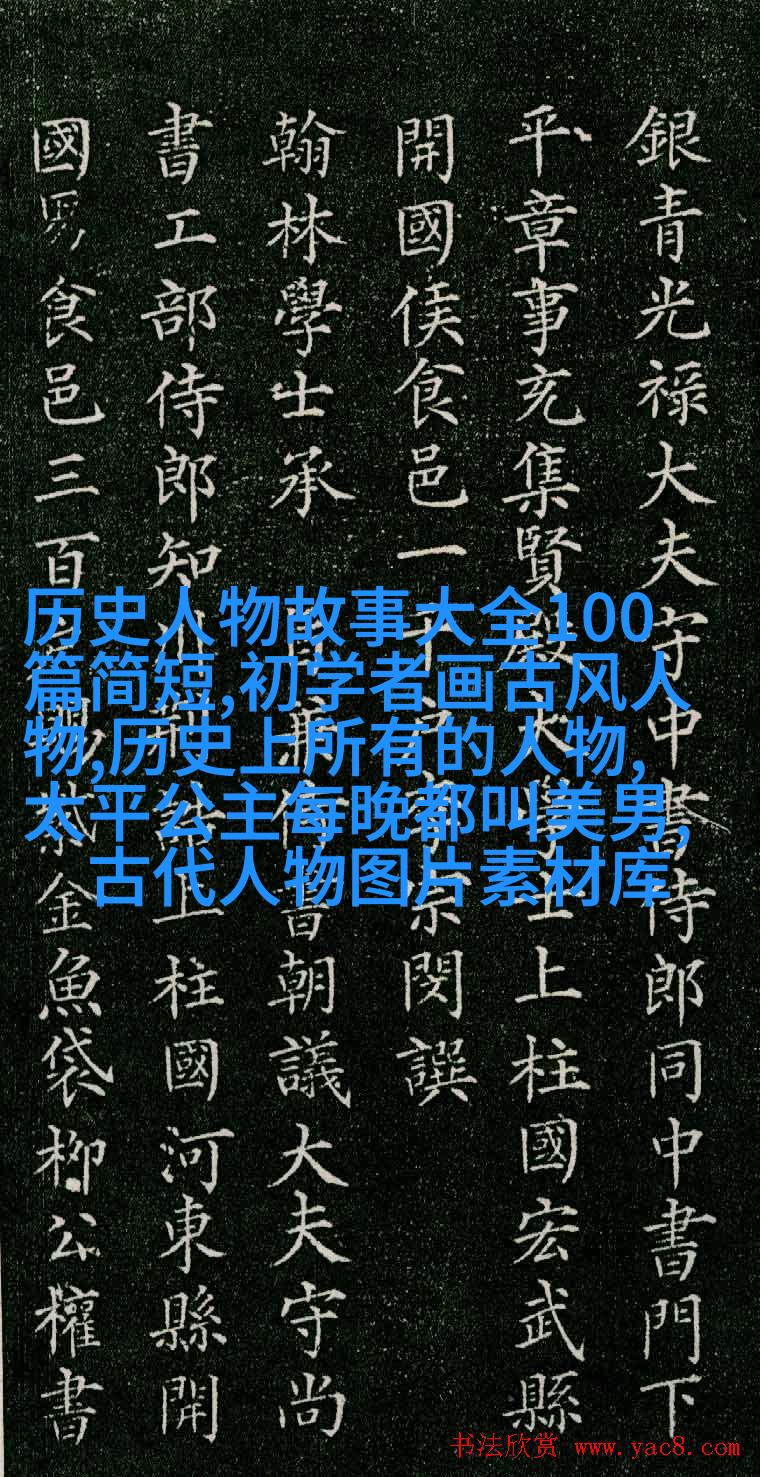 銀青光祿大夫守中書侍郎同中書門下
平章事充集賢殿大學士上柱國宏武縣
開國侯食邑一千户李宗閔譔
翰林學士承旨兼侍書朝議大夫守尚
書工部侍郎知制誥上柱國河東縣開
國男食邑三百户賜紫金魚袋柳公權書
历史人物故事大全100
篇简短,初学者画古风人
物,历史上所有的人物,
太平公主每晚都叫美男,
古代人物图片素材库
书法欣赏 www.yac8.com